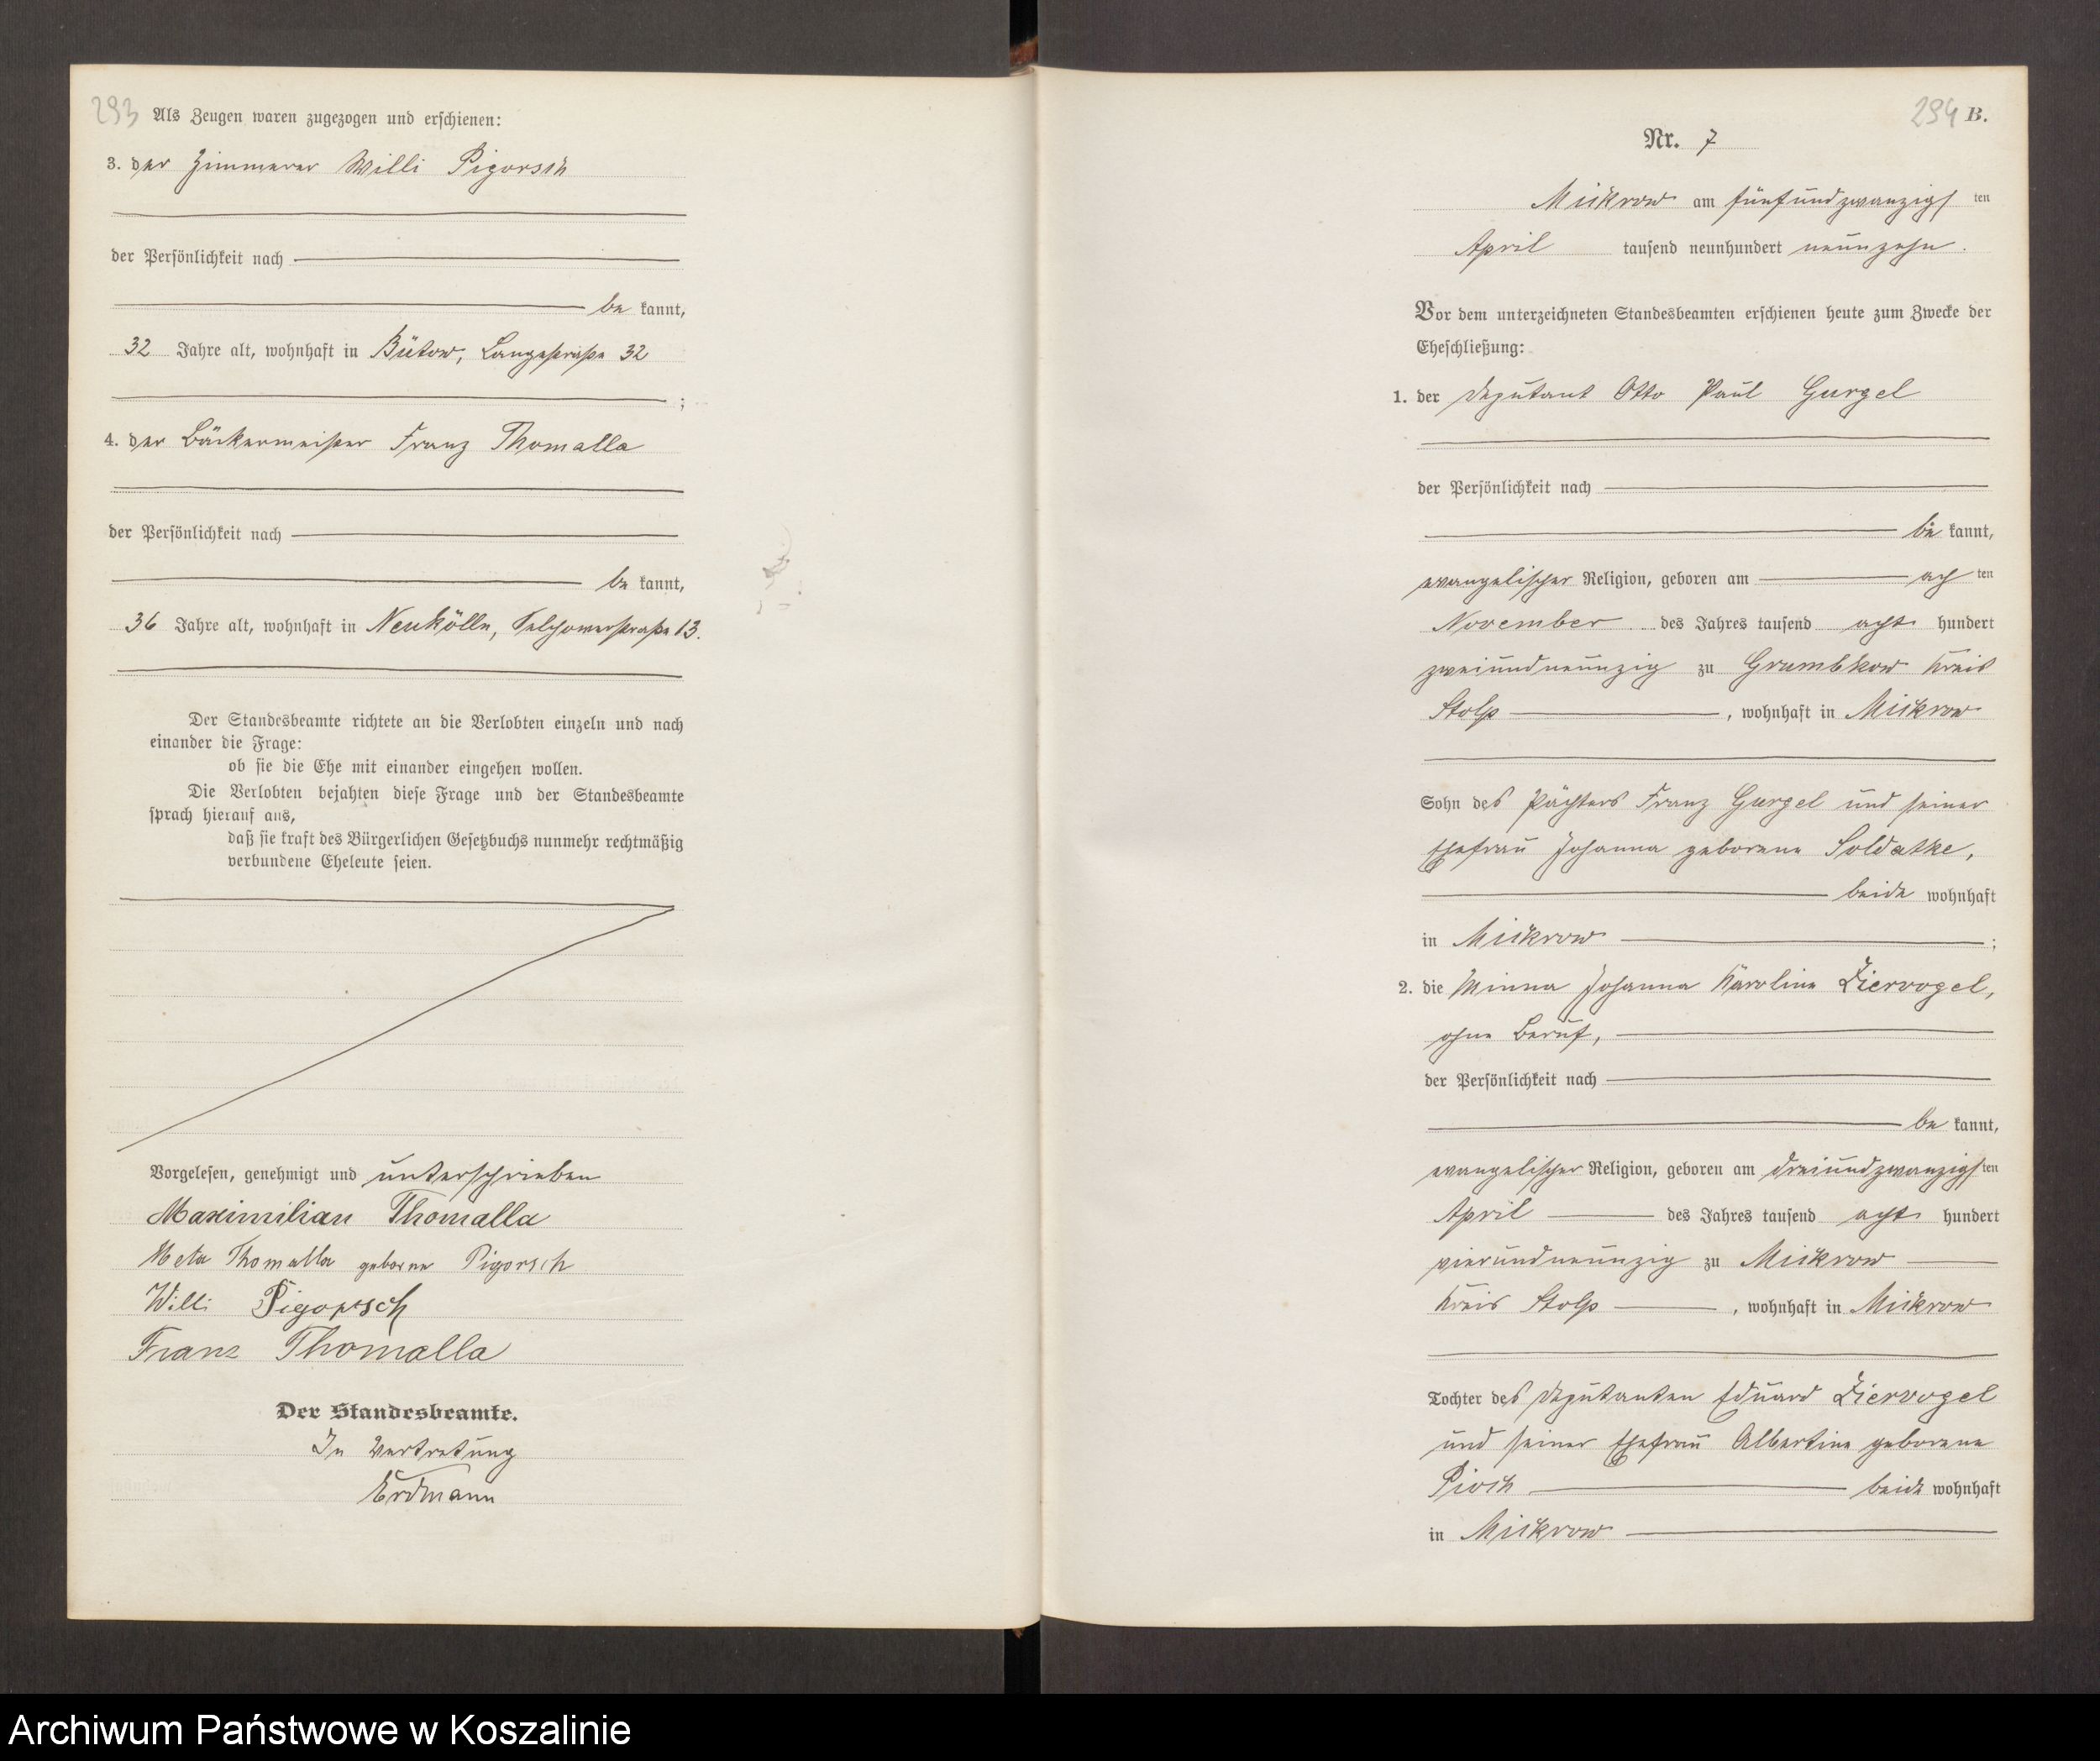 293
Als Zeugen waren zugezogen und erschienen:
3. der Zimmerer Willi Pigorsch
der Persönlichkeit nach
be kannt,
32 Jahre alt, wohnhaft in Bütow, Langestraße 32
;
4. der Bäckermeister Franz Thomalla
der Persönlichkeit nach
be kannt,
36 Jahre alt, wohnhaft in Neukölln, Selchowerstraße 13.
Der Standesbeamte richtete an die Verlobten einzeln und nach
einander die Frage:
ob sie die Ehe mit einander eingehen wollen.
Die Verlobten bejahten diese Frage und der Standesbeamte
sprach hierauf aus,
daß sie kraft des Bürgerlichen Gesetzbuchs nunmehr rechtmäßig
verbundene Eheleute seien.
Vorgelesen, genehmigt und unterschrieben
Maximilian Thomalla
Meta Thomalla geborne Pigorsch
Willi Pigorsch
Franz Thomalla
Der Standesbeamte.
In Vertretung
Erdmann
294 B.
Nr. 7
Mickrow am fünfundzwanzigs ten
April tausend neunhundert neunzehn.
Vor dem unterzeichneten Standesbeamten erschienen heute zum Zwecke der
Eheschließung:
1. der Deputant Otto Paul Gurgel
der Persönlichkeit nach
be kannt,
evangelischer Religion, geboren am ach ten
November des Jahres tausend acht hundert
zweiundneunzig zu Grumbkow Kreis
Stolp , wohnhaft in Mickrow
Sohn des Pächters Franz Gurgel und seiner
Ehefrau Johanna geborene Soldatke,
beide wohnhaft
in Mickrow ;
2. die Minna Johanna Karoline Ziervogel,
ohne Beruf,
der Persönlichkeit nach
be kannt,
evangelischer Religion, geboren am dreiundzwanzigs ten
April des Jahres tausend acht hundert
vierundneunzig zu Mickrow
Kreis Stolp , wohnhaft in Mickrow
Tochter des Deputanten Eduard Ziervogel
und seiner Ehefrau Albertine geborene
Pioch beide wohnhaft
in Mickrow
Archiwum Państwowe w Koszalinie